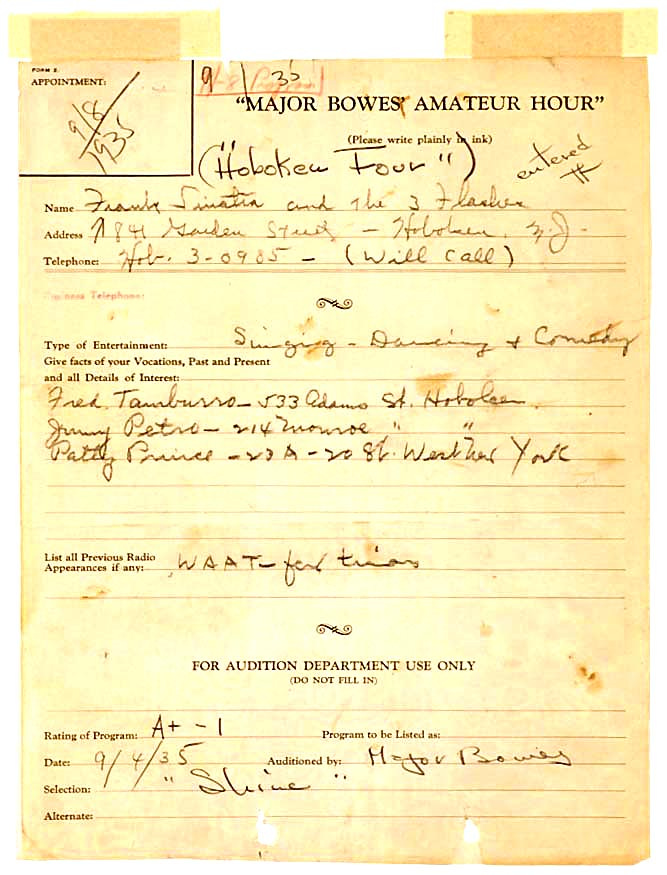 FORM 2.
APPOINTMENT:
9/8
1935
9/ /35
"MAJOR BOWES' AMATEUR HOUR"
(Please write plainly in ink)
("Hoboken Four")
entered
Name Frank Sinatra and the 3 Flashes
Address 841 Garden Street - Hoboken, N.J.
Telephone: Hob. 3-0985 - (Will Call)
Business Telephone:
Type of Entertainment: Singing - Dancing + Comedy
Give facts of your Vocations, Past and Present
and all Details of Interest:
Fred Tamburro - 533 Adams St. Hoboken.
Jimmy Petro - 214 Monroe " "
Patty Prince - 23 A - 20 St. West New York
List all Previous Radio
Appearances if any: WAAT - few times
FOR AUDITION DEPARTMENT USE ONLY
(DO NOT FILL IN)
Rating of Program: A+ - 1 Program to be Listed as:
Date: 9/4/35 Auditioned by: Major Bowes
Selection: "Shine"
Alternate: